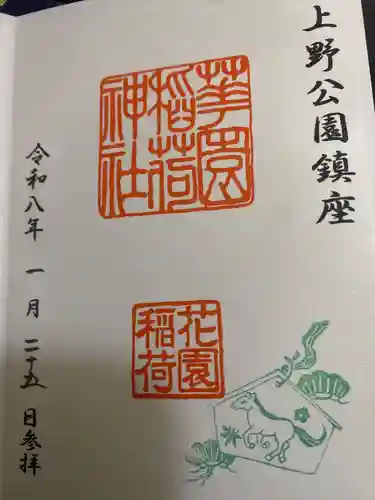 上野公園鎮座
華園稲荷神社
花園稲荷
令和八年 一月 二十五 日参拝